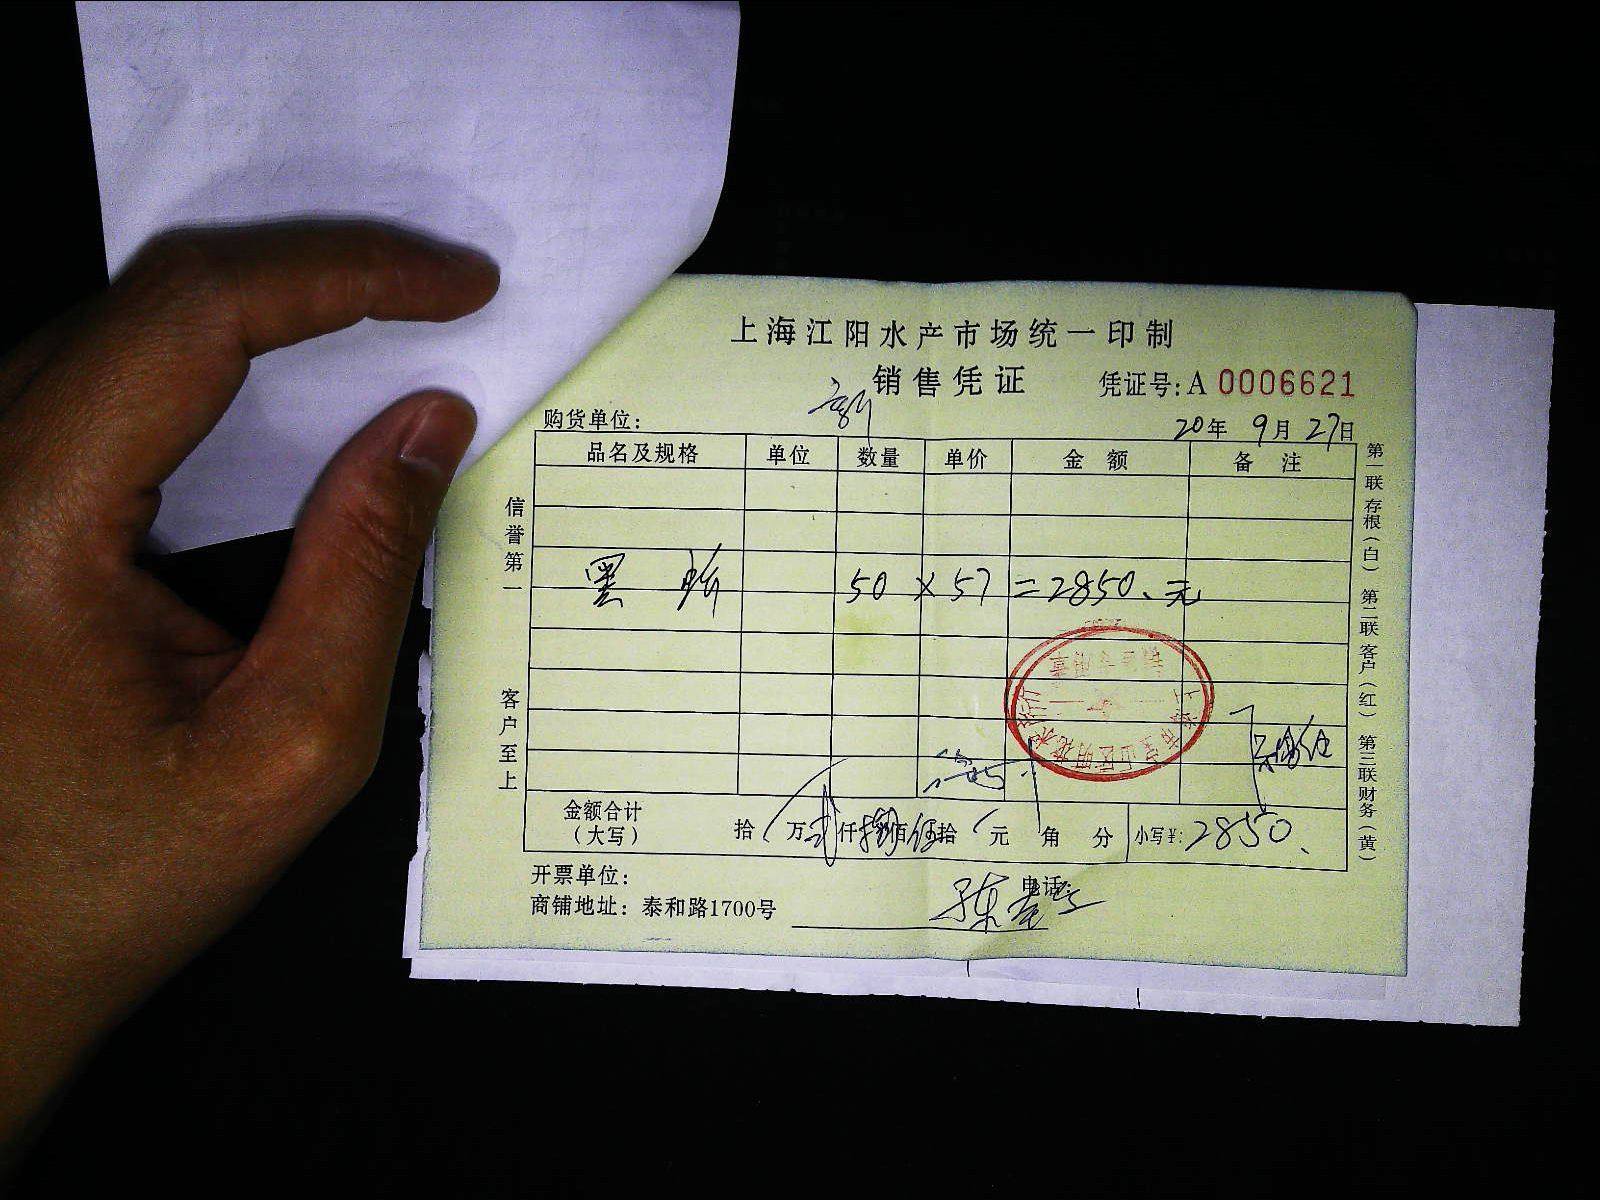 上海江阳水产市场统一印制
销售凭证
凭证号:A 0006621
购货单位:
20年 9月 27日
品名及规格 单位 数量 单价 金额 备注
黑 50 × 57 = 2850.元
金额合计
(大写)
拾 万 弍 仟 捌 佰 伍 拾 元 角 分 小写¥: 2850.
开票单位:
电话:
商铺地址: 泰和路1700号
陈
信誉第一
客户至上
第一联存根(白) 第二联客户(红) 第三联财务(黄)